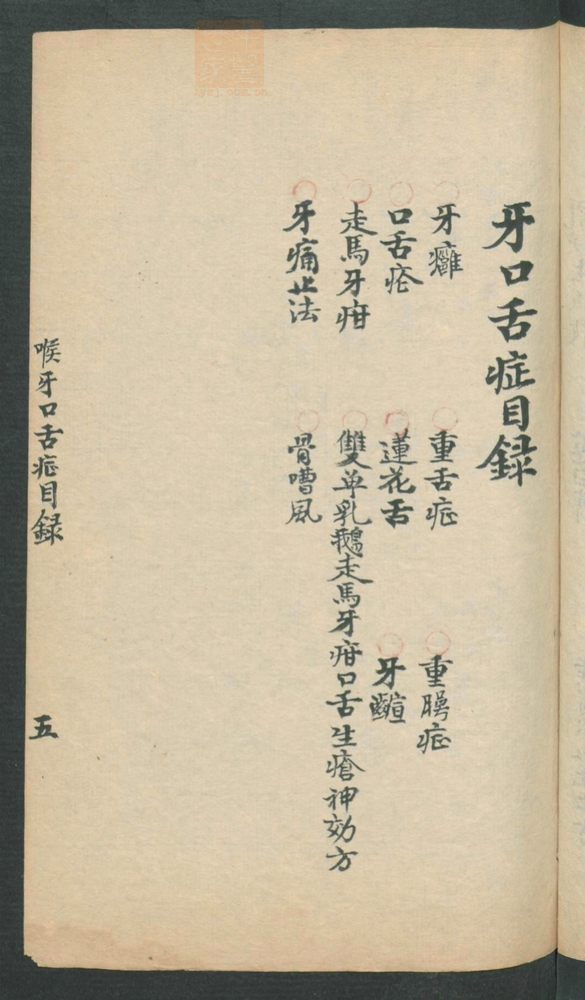 牙口舌症目録
牙癰　重舌症　重腭症
口舌疮　蓮花舌　牙齦
走馬牙疳　雙单乳鵝走馬牙疳口舌生瘡神効方
牙痛止法　骨嘈風
喉牙口舌症目録　五